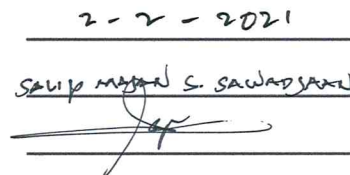 2 - 2 - 2021
SALIP MAJAN S. SAWADJAAN